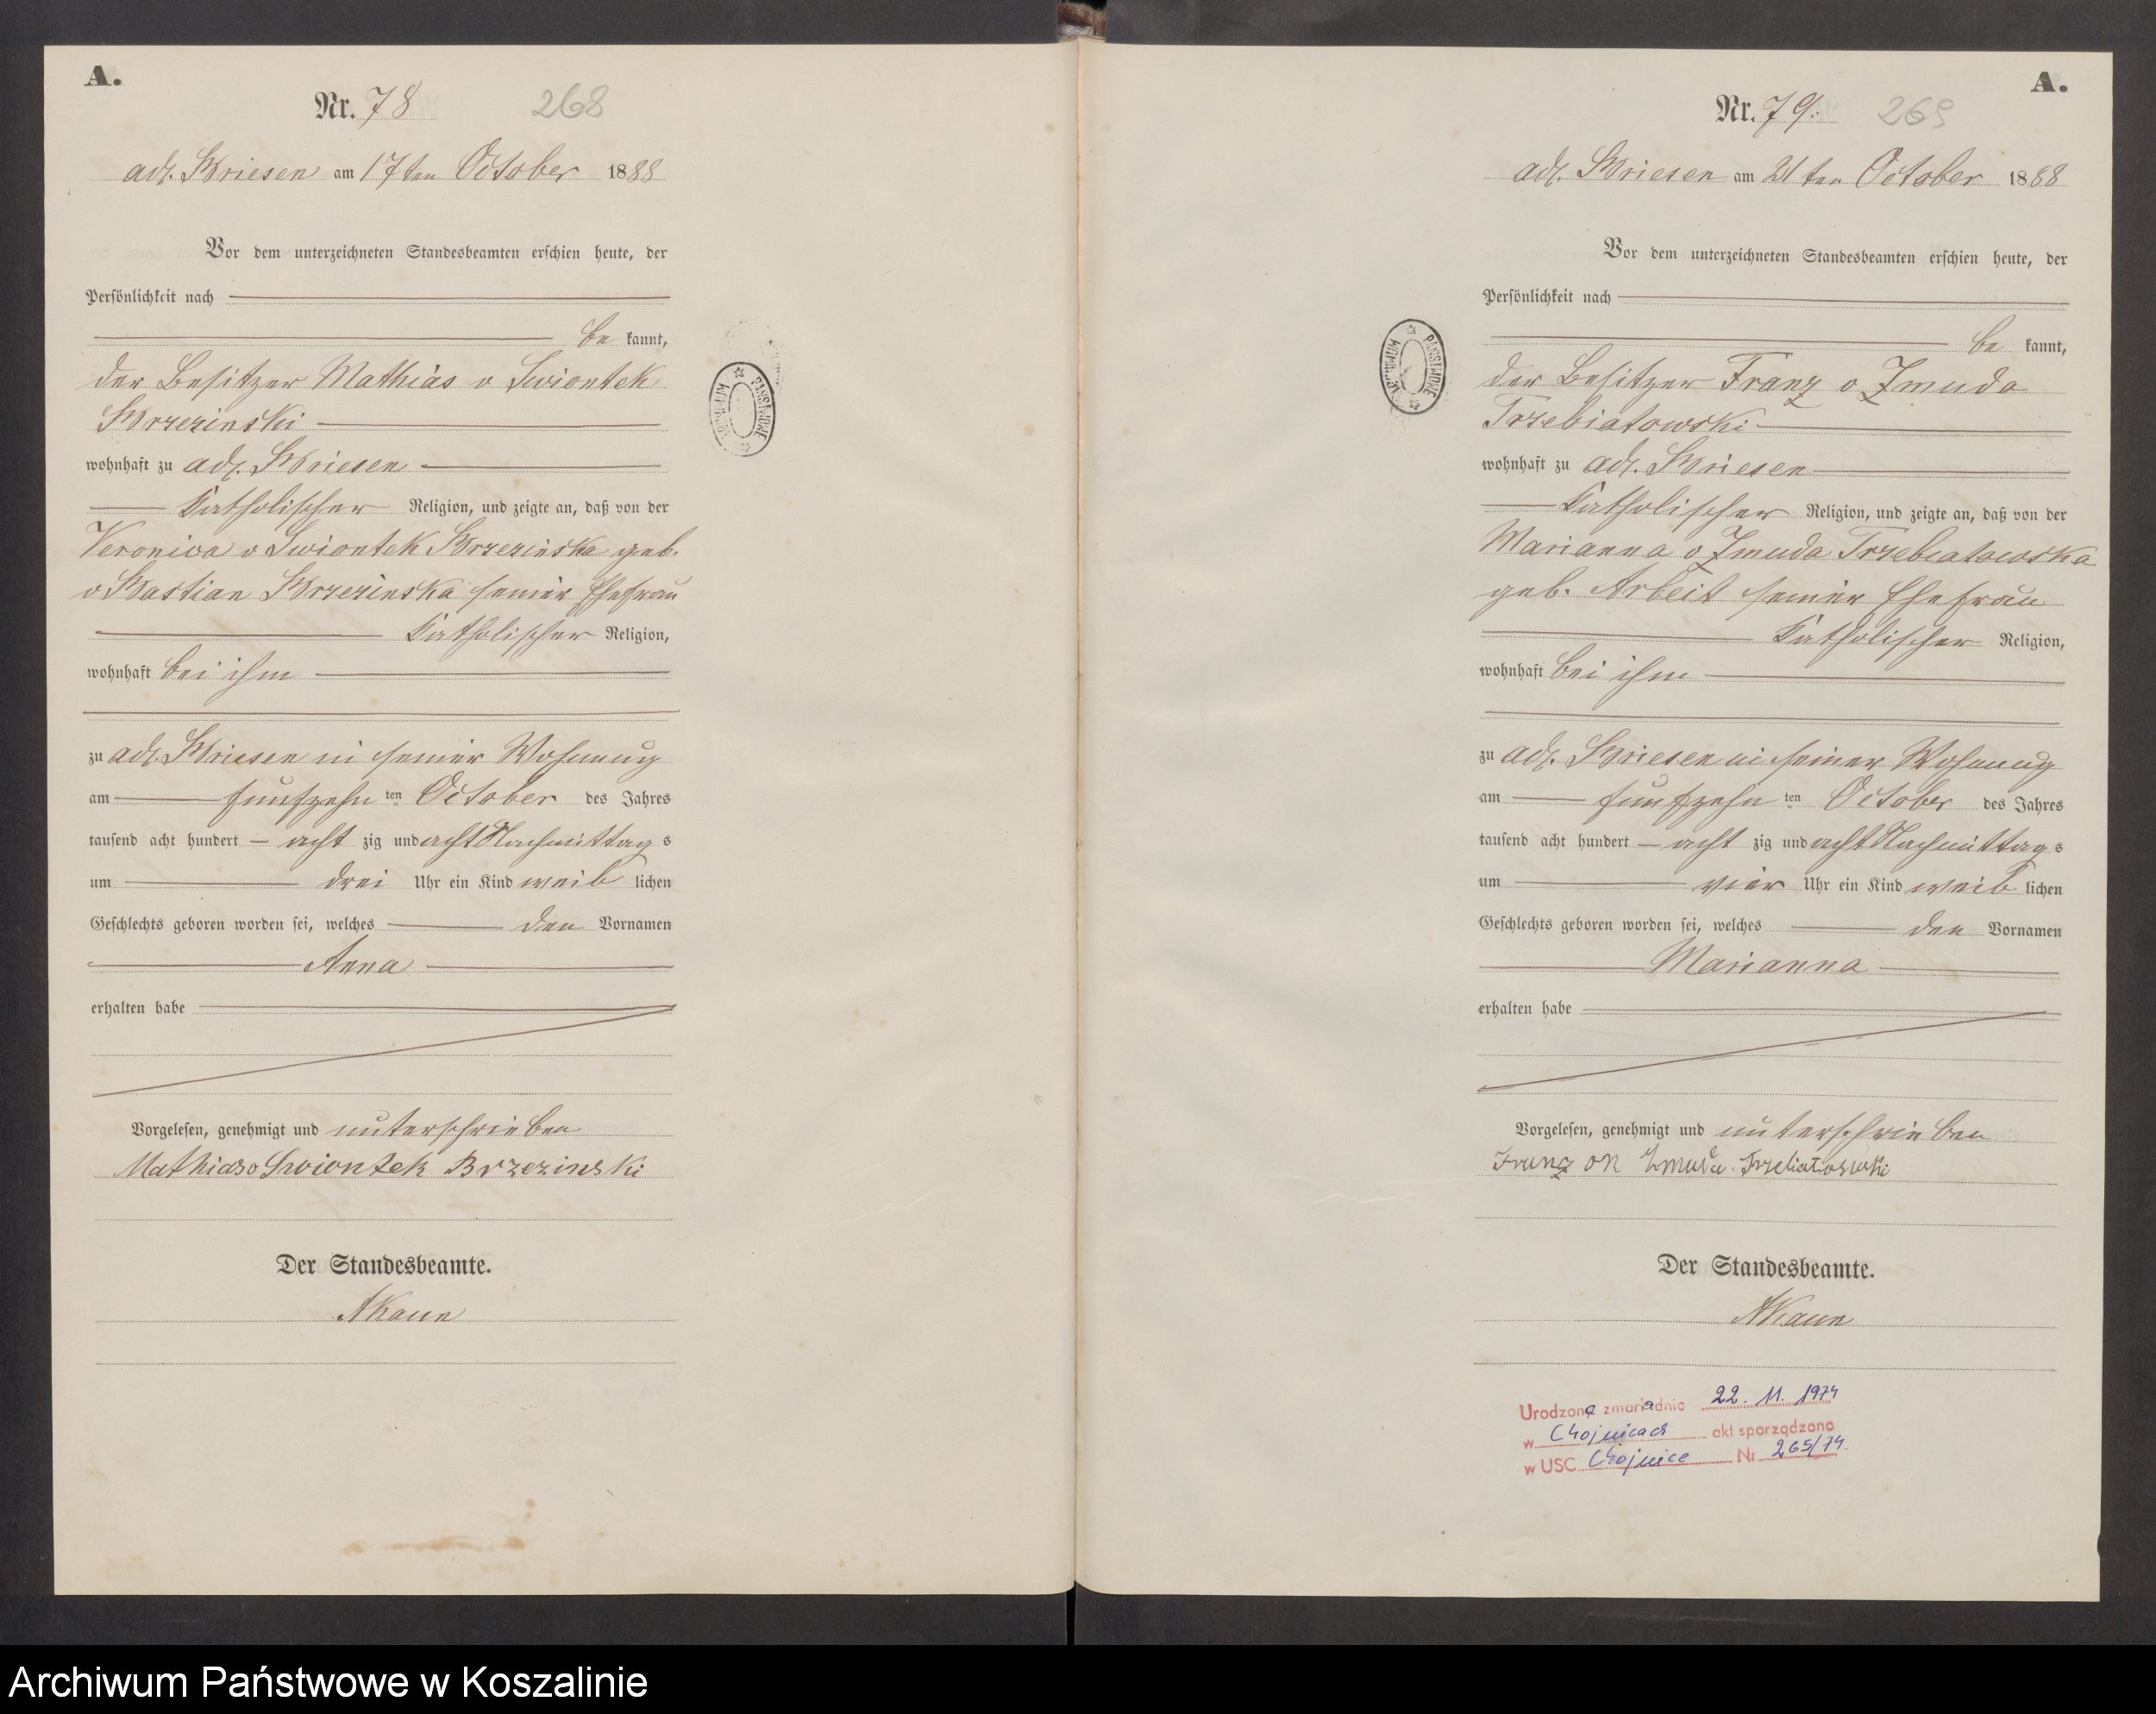 A.
Nr. 78
268
adl. Briesen am 17ten October 1888
Vor dem unterzeichneten Standesbeamten erschien heute, der
Persönlichkeit nach
be kannt,
der Besitzer Mathias v Swiontek
Brzezinski
wohnhaft zu adl. Briesen
Katholischer Religion, und zeigte an, daß von der
Veronica v Swiontek Brzezinska geb.
v Wastian Brzezinska seiner Ehefrau
Katholischer Religion,
wohnhaft bei ihm
zu adl. Briesen in seiner Wohnung
am funfzehn ten October des Jahres
tausend acht hundert acht zig und acht Nachmittag s
um drei Uhr ein Kind weib lichen
Geschlechts geboren worden sei, welches den Vornamen
Anna
erhalten habe
Vorgelesen, genehmigt und unterschrieben
Mathias v Swiontek Brzezinski
Der Standesbeamte.
PAŃSTWOWE
A.
Nr. 79.
269
adl. Briesen am 21ten October 1888
Vor dem unterzeichneten Standesbeamten erschien heute, der
Persönlichkeit nach
be kannt,
der Besitzer Franz v Zmuda
Trzebiatowski
wohnhaft zu adl. Briesen
Katholischer Religion, und zeigte an, daß von der
Marianna v Zmuda Trzebiatowska
geb. Arbeit seiner Ehefrau
Katholischer Religion,
wohnhaft bei ihm
zu adl. Briesen in seiner Wohnung
am funfzehn ten October des Jahres
tausend acht hundert acht zig und acht Nachmittag s
um vier Uhr ein Kind weib lichen
Geschlechts geboren worden sei, welches den Vornamen
Marianna
erhalten habe
Vorgelesen, genehmigt und unterschrieben
Franz on Zmuda Trzebiatowski
Der Standesbeamte.
PAŃSTWOWE
Urodzona zmarła dnia 22. 11. 1974
w Chojnicach akt sporządzono
w USC Chojnice Nr 265/74
Archiwum Państwowe w Koszalinie